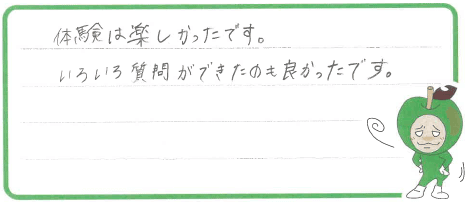 体験は楽しかったです。
いろいろ質問ができたのも良かったです。